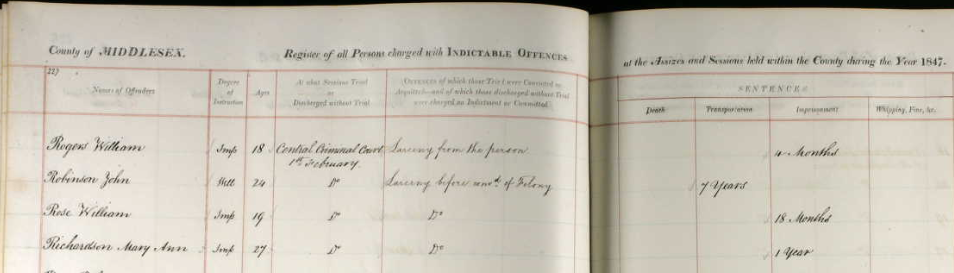 County of MIDDLESEX. Register of all Persons charged with INDICTABLE OFFENCES at the Assizes and Sessions held within the County during the Year 1847.
Names of Offenders
Degree of Instruction
Ages
At what Sessions Tried or Discharged without Trial
OFFENCES of which those Tried were Convicted or Acquitted—and of which those discharged without Trial were charged on Indictment or Committed
SENTENCES
Death Transportation Imprisonment Whipping, Fine, &c.
Rogers William Imp 18 Central Criminal Court Larceny from the person 4 Months
1st February
Robinson John Well 24 Do Larceny before convd. of Felony 7 Years
Rose William Imp 19 Do Do 18 Months
Richardson Mary Ann Imp 27 Do Do 1 Year